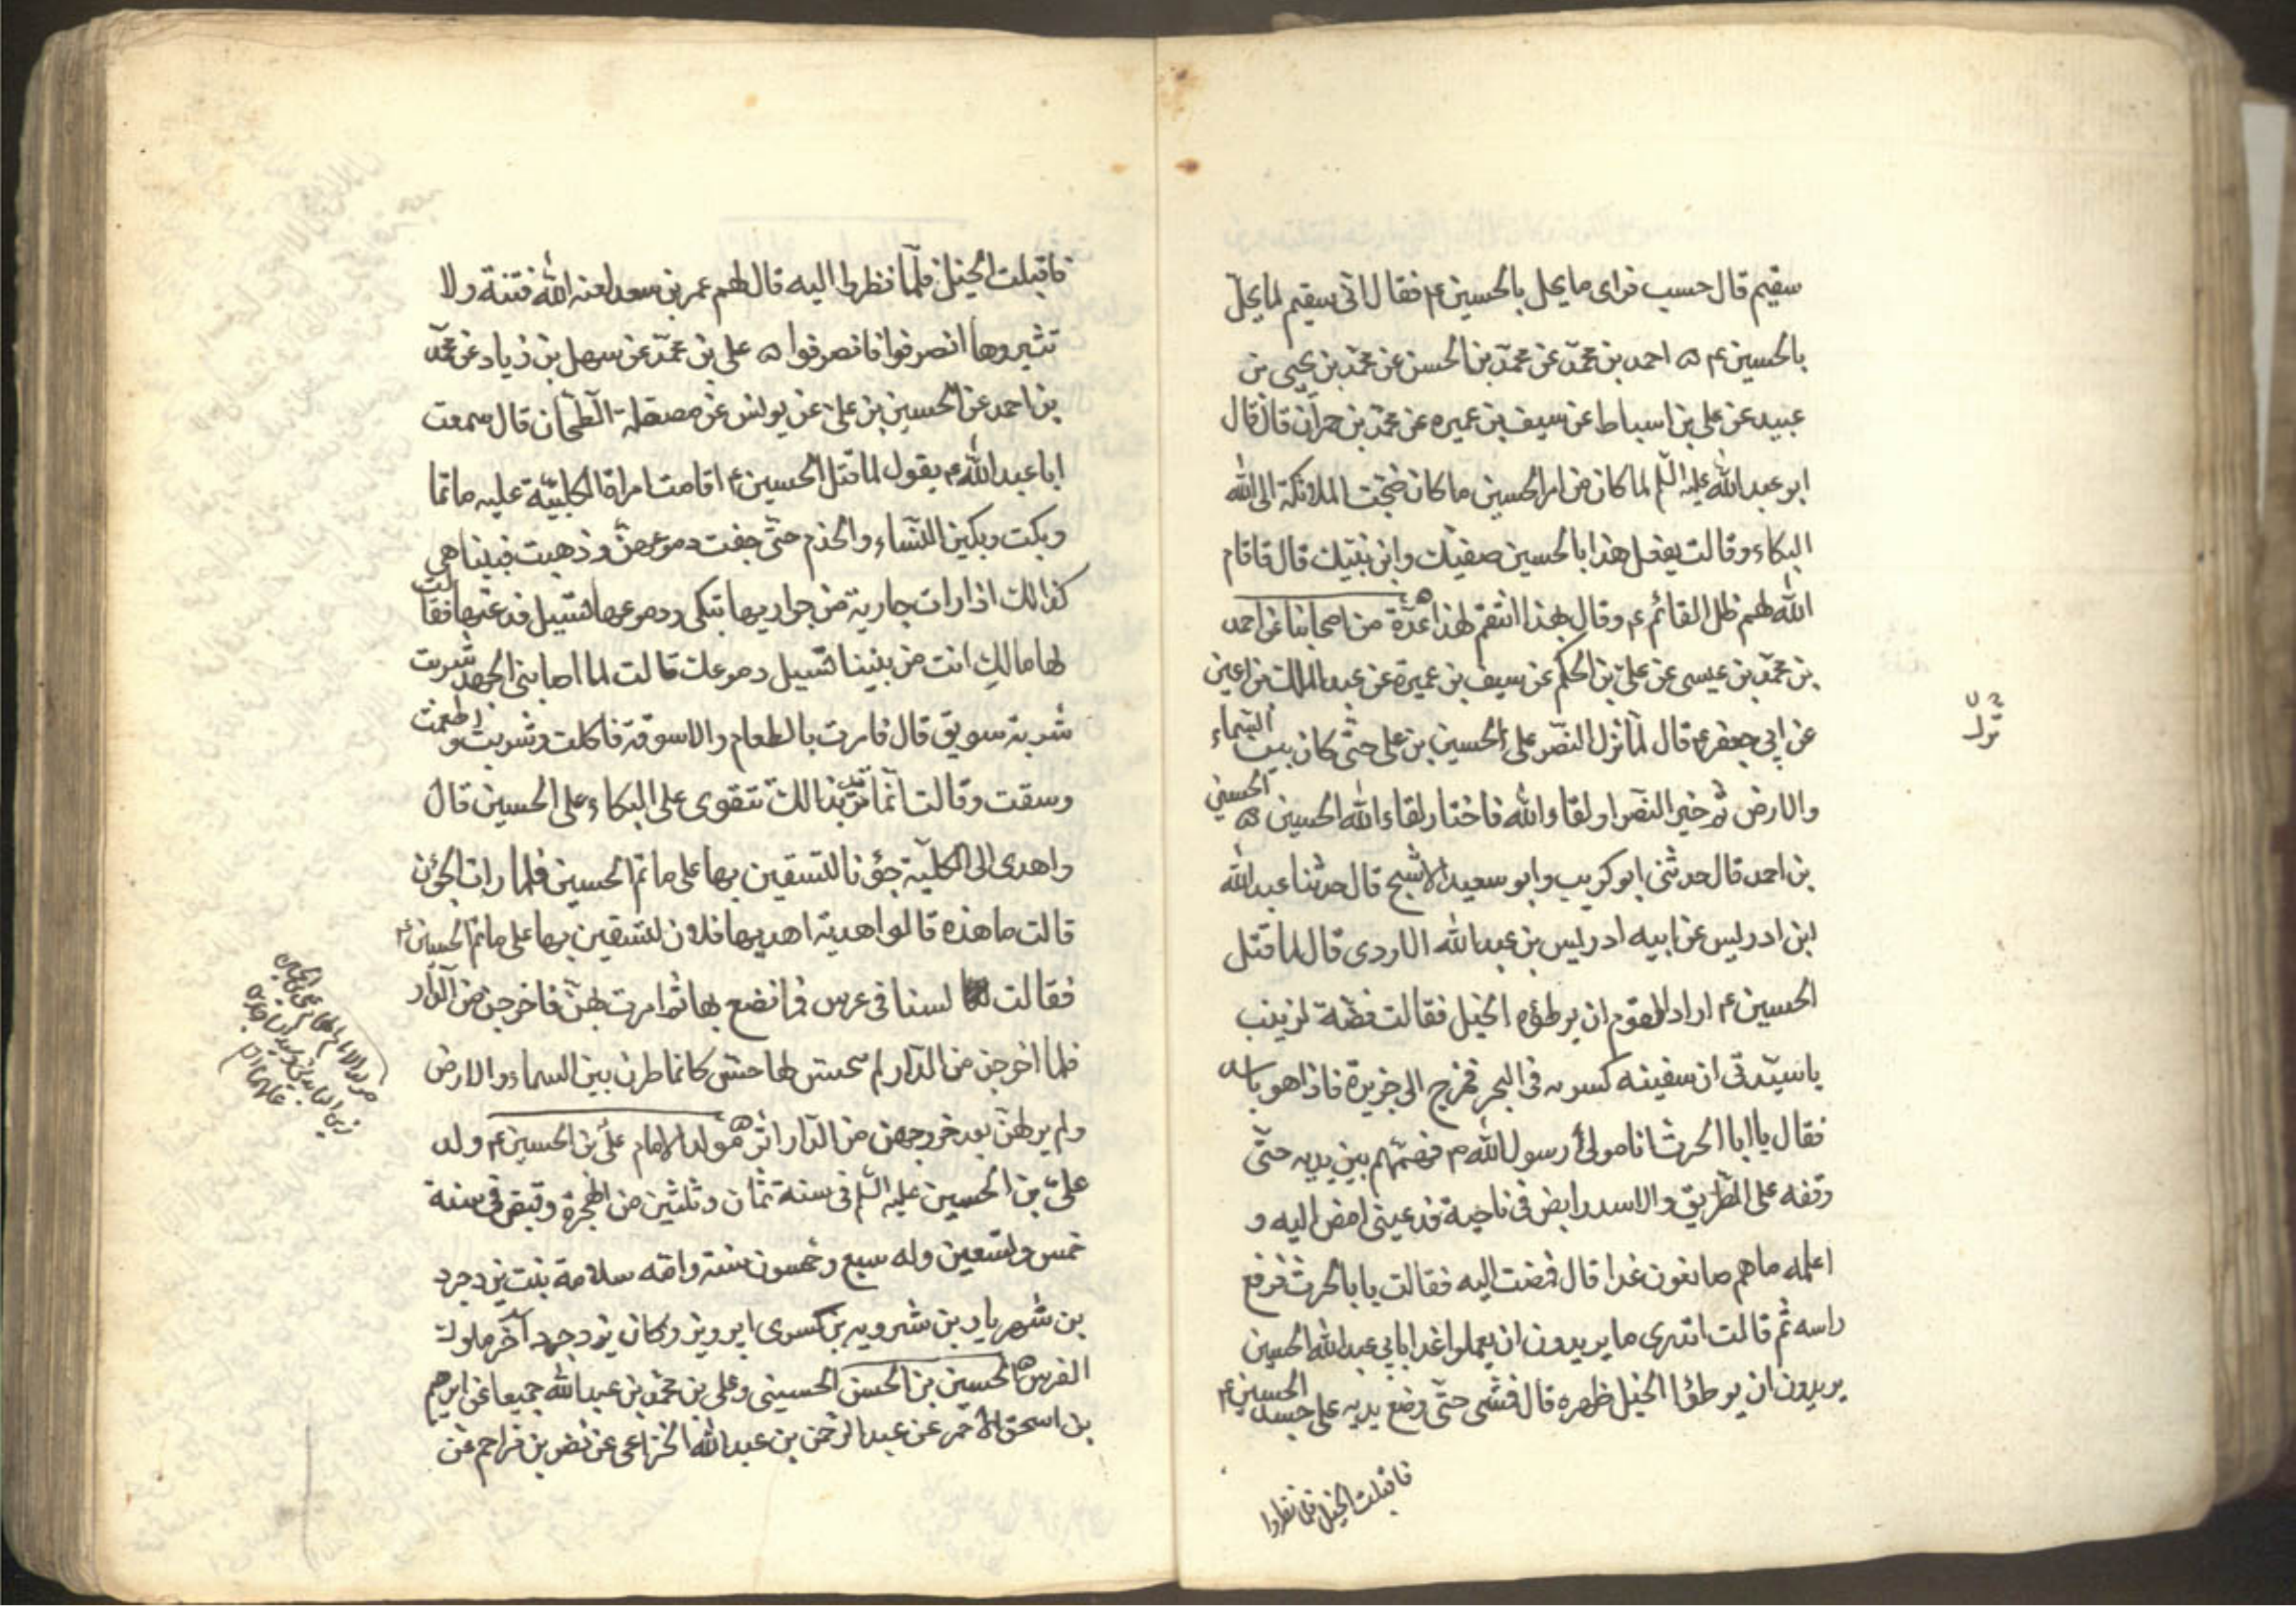 سقيم قال حسب فراى ما يحل بالحسين ع فقال انى سقيم لما يحل
بالحسين ع ه احمد بن محمد عن محمد بن الحسن عن محمد بن عيسى بن
عبيد عن على بن اسباط عن سيف بن عميره عن محمد بن حمران قال قال
ابو عبد الله عليه السلم لما كان من امر الحسين ما كان ضجت الملائكة الى الله
البكاء وقالت يفعل هذا بالحسين صفيك وابن نبيك قال فاقام
الله لهم ظل القائم ع وقال بهذا انتقم لهذا ه عدة من اصحابنا عن احمد
بن محمد بن عيسى عن على بن الحكم عن سيف بن عميرة عن عبد الملك بن اعين
عن ابى جعفر ع قال لما نزل النصر على الحسين بن على حتى كان بين السماء
والارض ثم خير النصر او لقاء الله فاختار لقاء الله الحسين ه الحسين
بن احمد قال حدثنى ابو كريب وابو سعيد الاشج قال حدثنا عبد الله
ابن ادريس عن ابيه ادريس بن عبد الله الاودى قال لما قتل
الحسين ع اراد القوم ان يوطؤه الخيل فقالت فضة لزينب
ياسيدتى ان سفينه كسر به فى البحر فخرج الى جزيرة فاذا هو باسد
فقال يا ابا الحرث انا مولى رسول الله ص فهمهم بين يديه حتى
وقفه على الطريق والاسد رابض فى ناحية فدعينى امض اليه و
اعلمه ما هم صانعون غدا قال فمضت اليه فقالت يا ابا الحرث فرفع
راسه ثم قالت اتدرى ما يريدون ان يعملوا غدا بابى عبد الله الحسين
يريدون ان يوطؤا الخيل ظهره قال فمشى حتى وضع يديه على جسد الحسين ع
فاقبلت الخيل فلما نظروا
فاقبلت الخيل فلما نظروا اليه قال لهم عمر بن سعد لعنه الله فتنة ولا
تثيروها انصرفوا فانصرفوا ه على بن محمد عن سهل بن زياد عن محمد
بن احمد عن الحسين بن على عن يونس عن مصقلة الطحان قال سمعت
ابا عبد الله ع يقول لما قتل الحسين ع اقامت امراة الكلبية عليه ماتما
وبكت وبكين النساء والخدم حتى جفت دموعهن وذهبت فبينا هى
كذالك اذا رات جارية من جواريها تبكى ودموعها تسيل فدعتها فقالت
لها مالك انت من بيننا تسيل دموعك قالت لما اصابنى الجهد شربت
شربة سويق قال فامرت بالطعام والاسوقة فاكلت وشربت واطعمت
وسقت وقالت انما نريد بذالك نتقوى على البكاء على الحسين قال
واهدى الى الكلبية جؤنا لتستعين بها على ماتم الحسين فلما رات الجؤن
قالت ما هذه قالوا هدية اهديها فلان لتستعين بها على ماتم الحسين ع
فقالت لسنا فى عرس فما نصنع بها ثم امرت بهن فاخرجن من الدار
فلما اخرجن من الدار لم يحس لها حس كانما طرن بين السماء والارض
ولم ير لهن بعد خروجهن من الدار اثر ه مولد الامام على بن الحسين ع ولد
على بن الحسين عليه السلم فى سنة ثمان وثلثين من الهجرة وقبض فى سنة
خمس وتسعين وله سبع وخمسون سنة وامه سلامة بنت يزدجرد
بن شهريار بن شرويه بن كسرى ابرويز وكان يزدجرد آخر ملوك
الفرس ه الحسين بن الحسن الحسينى وعلى بن محمد بن عبد الله جميعا عن ابرهيم
بن اسحق الاحمر عن عبد الرحمن بن عبد الله الخزاعى عن نصر بن مزاحم عن